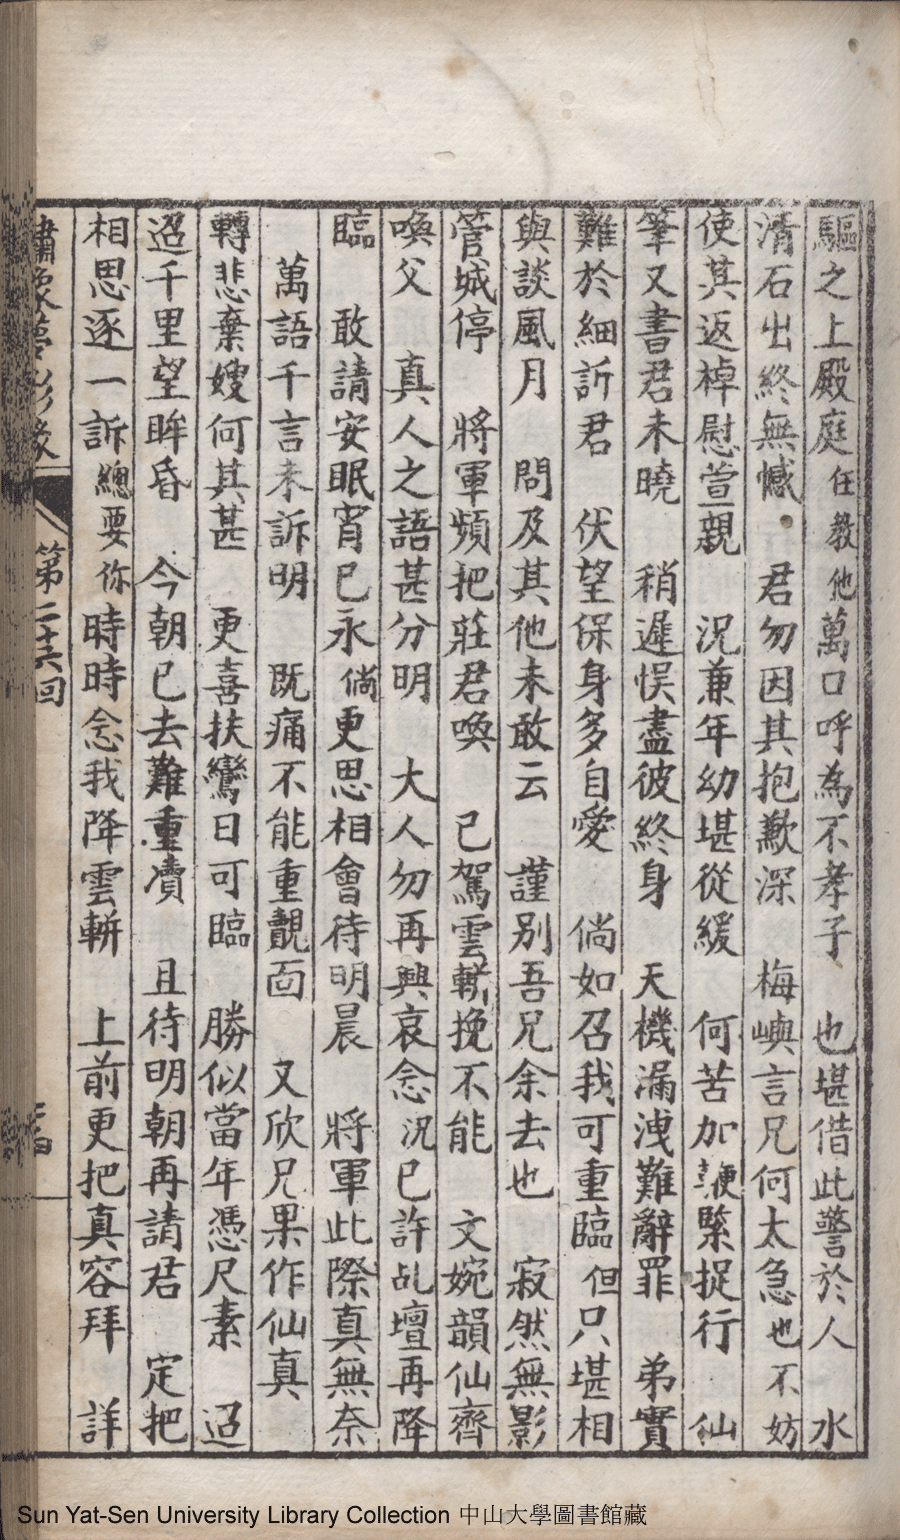 驅之上殿庭任教他萬口呼為不孝子　也堪借此警於人　水
清石出終無憾　君勿因其抱歉深　梅嶼言兄何太急也不妨
使其返棹慰萱親　況兼年幼堪從緩　何苦加鞭緊捉行　仙
筆又書君未曉　稍遲悞盡彼終身　天機漏洩難辭罪　弟實
難於細訢君　伏望保身多自愛　倘如召我可重臨但只堪相
與談風月　問及其他未敢云　謹別吾兄余去也　寂然無影
管城停　將軍頻把莊君喚　已駕雲輧挽不能　文婉韻仙齊
喚父　真人之語甚分明　大人勿再興哀念況已許乩壇再降
臨　敢請安眠宵已永倘更思相會待明晨　將軍此際真無奈
萬語千言未訴明　既痛不能重覩面　又欣兄果作仙真
轉悲棄嫂何其甚　更喜扶鸞日可臨　勝似當年憑尺素　迢
迢千里望眸昏　今朝已去難重凟　且待明朝再請君　定把
相思逐一訴總要你時時念我降雲輧　上前更把真容拜　詳
第二十六回
Sun Yat-Sen University Library Collection 中山大學圖書館藏